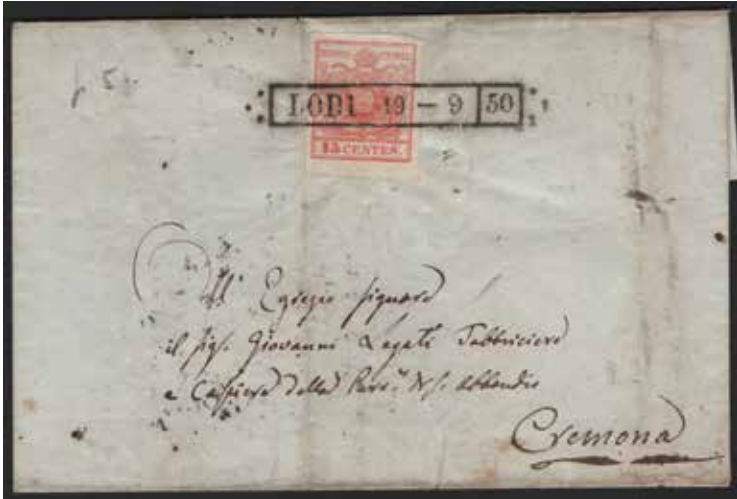 LODI 19 - 9 50
15 CENTES.
All' Egregio Signore
il Sig. Giovanni Legati Fabbriciere
e Cassiere della Parr. di S. Abbondio
Cremona